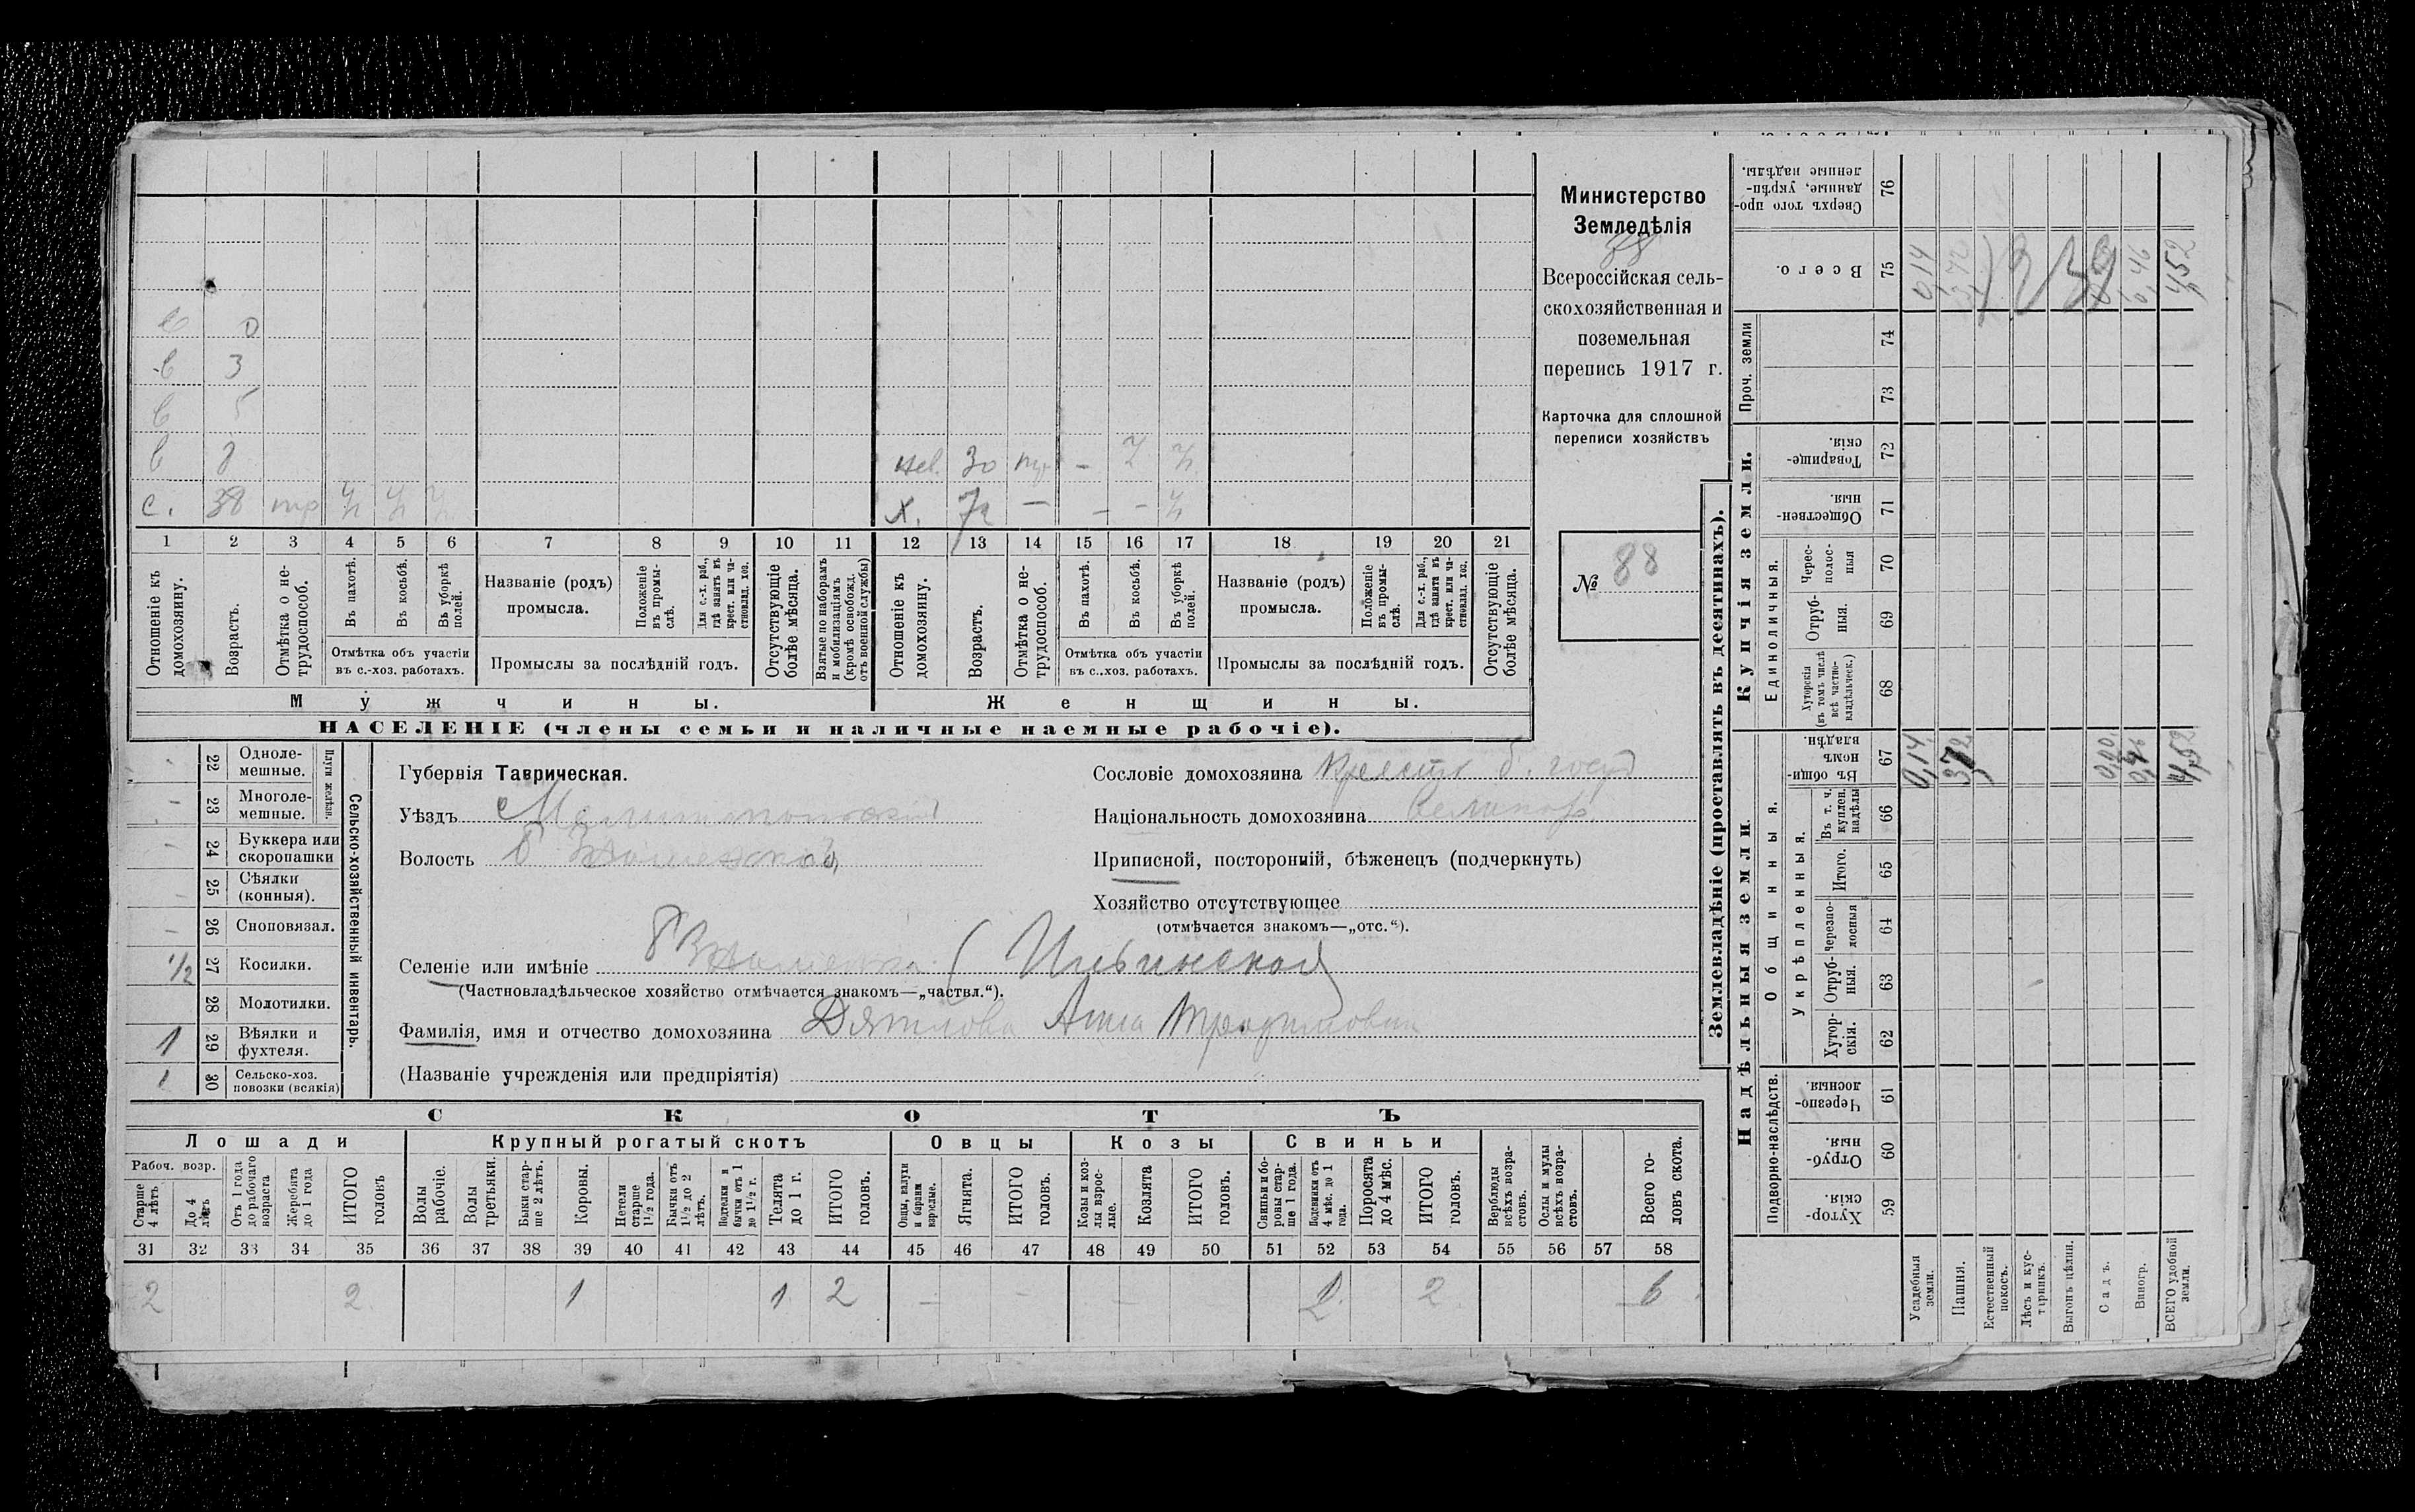 Министерство
Земледѣлія
88
Всероссійская сель-
скохозяйственная и
поземельная
перепись 1917 г.
Карточка для сплошной
переписи хозяйствъ
№ 88
с 0
с 3
с 5
с 8
с. 38 тр ч ч ч
нев. 30 тр - ч ч
х. 72 — - - ч
1 2 3 4 5 6 7 8 9 10 11 12 13 14 15 16 17 18 19 20 21
Отношеніе къ домохозяину.
Возрастъ.
Отмѣтка о не-трудоспособ.
Въ пахотѣ.
Въ косьбѣ.
Въ уборкѣ полей.
Отмѣтка объ участіи въ с.-хоз. работахъ.
Названіе (родъ) промысла.
Положеніе въ промы-слѣ.
Для с.-х. раб., гдѣ занятъ въ крест. или ча-стновлад. хоз.
Промыслы за послѣдній годъ.
Отсутствующіе болѣе мѣсяца.
Взятые по наборамъ и мобилизаціямъ (кромѣ освобожд. отъ военной службы)
Отношеніе къ домохозяину.
Возрастъ.
Отмѣтка о не-трудоспособ.
Въ пахотѣ.
Въ косьбѣ.
Въ уборкѣ полей.
Отмѣтка объ участіи въ с..хоз. работахъ.
Названіе (родъ) промысла.
Положеніе въ промы-слѣ.
Для с.-х. раб., гдѣ занята въ крест. или ча-стновлад. хоз.
Промыслы за послѣдній годъ.
Отсутствующіе болѣе мѣсяца.
Мужчины.
Женщины.
НАСЕЛЕНІЕ (члены семьи и наличные наемные рабочіе).
Сельско-хозяйственный инвентарь.
Плуги желѣзн.
- 22 Одноле-мешные.
- 23 Многоле-мешные.
- 24 Буккера или скоропашки
- 25 Сѣялки (конныя).
- 26 Сноповязал.
1/2 27 Косилки.
28 Молотилки.
1 29 Вѣялки и фухтеля.
1 30 Сельско-хоз. повозки (всякія)
Губернія Таврическая.
Уѣздъ Мелитопольскій
Волость Б Знаменской
Селеніе или имѣніе Б Знаменка (Ильинская)
(Частновладѣльческое хозяйство отмѣчается знакомъ—„частвл.“).
Фамилія, имя и отчество домохозяина Дятлова Анна Трофимовна
(Названіе учрежденія или предпріятія)
Сословіе домохозяина Крестн б. госуд
Національность домохозяина великор
Приписной, посторонній, бѣженецъ (подчеркнуть)
Хозяйство отсутствующее
(отмѣчается знакомъ—„отс.“).
СКОТЪ
Лошади
Крупный рогатый скотъ
Овцы
Козы
Свиньи
Рабоч. возр.
Старше 4 лѣтъ
До 4 лѣтъ
Отъ 1 года до рабочаго возраста
Жеребята до 1 года
ИТОГО головъ
Волы рабочіе.
Волы третьяки.
Быки стар-ше 2 лѣтъ.
Коровы.
Нетели старше 1½ года.
Бычки отъ 1½ до 2 лѣтъ.
Подтелки и бычки отъ 1 до 1½ г.
Телята до 1 г.
ИТОГО головъ.
Овцы, валухи и бараны взрослые.
Ягнята.
ИТОГО головъ.
Козы и коз-лы взрос-лые.
Козлята
ИТОГО головъ.
Свиньи и бо-ровы стар-ше 1 года.
Подсвинки отъ 4 мѣс. до 1 года.
Поросята до 4 мѣс.
ИТОГО головъ.
Верблюды всѣхъ возра-стовъ.
Ослы и мулы всѣхъ возра-стовъ.
Всего го-ловъ скота.
31 32 33 34 35 36 37 38 39 40 41 42 43 44 45 46 47 48 49 50 51 52 53 54 55 56 57 58
2 2 1 1 2 — - — 2 2 6
Землевладѣніе (проставлять въ десятинахъ).
Надѣльныя земли.
Купчія земли.
Проч. земли
Подворно-наслѣдств.
Общинныя.
Укрѣпленныя.
Единоличныя.
Сверхъ того про-данные, укрѣп-ленные надѣлы. 76
Всего. 75
74
73
Товарище-скія. 72
Обществен-ныя. 71
Черес-полос-ныя 70
Отруб-ныя. 69
Хуторскія (въ томъ числѣ всѣ частно-владѣльческ.) 68
Въ общи-номъ владѣн. 67
Въ т. ч. куплен. надѣлы 66
Итого. 65
Черезпо-лосныя 64
Отруб-ныя. 63
Хутор-скія. 62
Черезпо-лосныя. 61
Отруб-ныя. 60
Хутор-скія. 59
Усадебныя земли.
Пашня.
Естественный покосъ.
Лѣсъ и кус-тарникъ.
Выгонъ цѣлин.
Садъ.
Виногр.
ВСЕГО удобной земли.
0,14 3,72 0,46 4,52
0,14 4,52